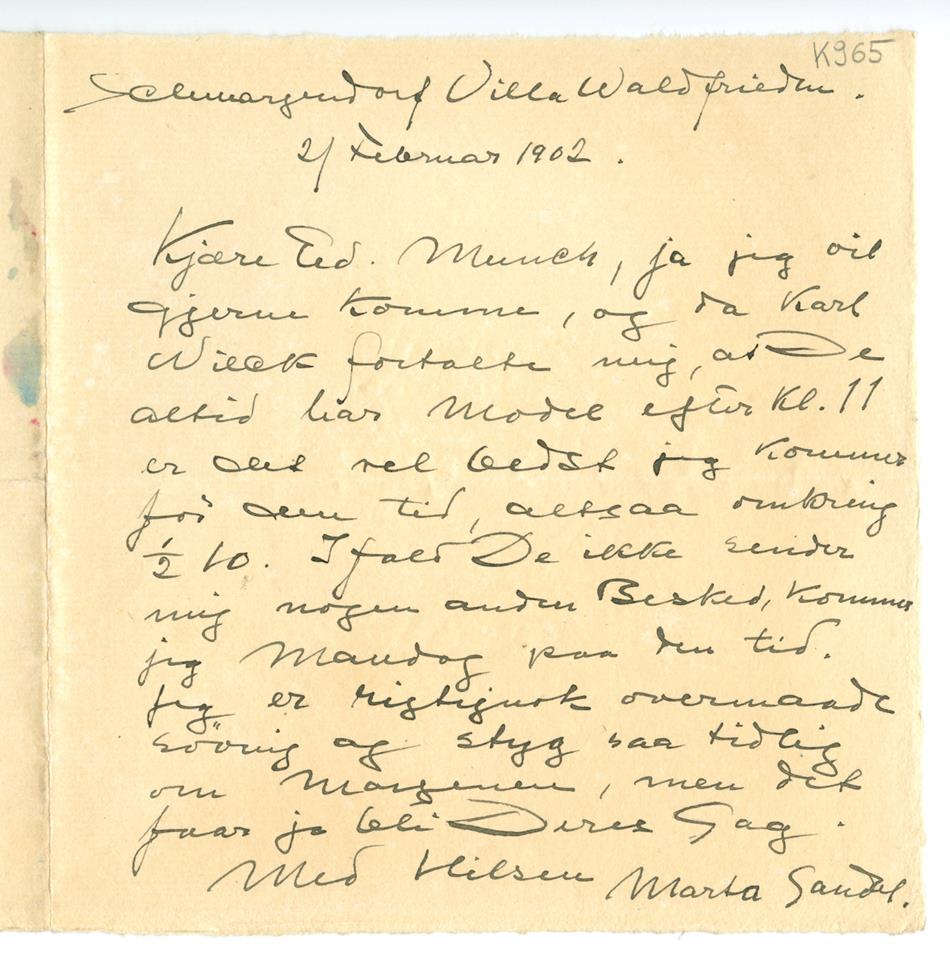 K965
Schmargendorf Villa Waldfrieden.
2/ Februar 1902.
Kjære Ed. Munch, ja jeg vil
gjerne komme, og da Karl
Wilck fortalte mig, at De
altid har Model efter Kl. 11
er det vel bedst jeg kommer
før den tid, altsaa omkring
½ 10. Ifald De ikke sender
mig nogen anden Besked, kommer
jeg Mandag paa den tid.
Jeg er rigtignok overmaade
søvnig og styg saa tidlig
om Morgenen, men det
faar jo bli Deres Sag.
Med Hilsen Marta Sandal.